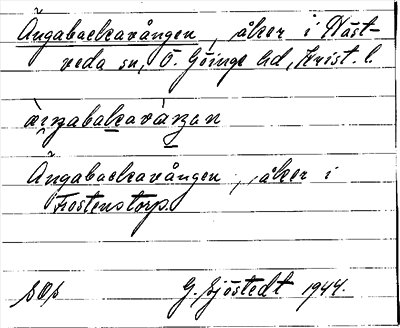 Ängabackavången, åker i Häst-
veda sn, Ö. Göinge hd, Krist. l.
Ängabackavången, åker i
Frostenstorp.
G. Sjöstedt 1944.